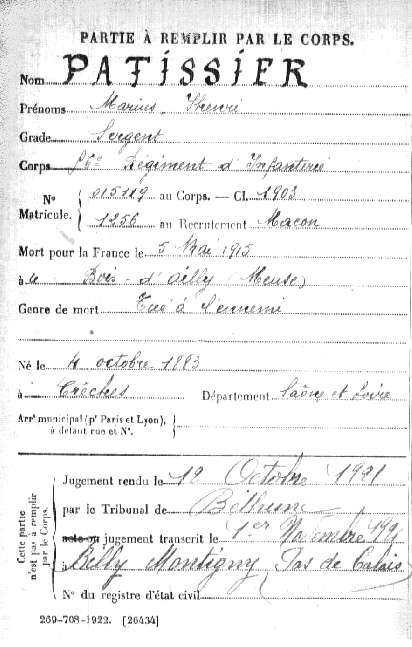 PARTIE À REMPLIR PAR LE CORPS.
Nom PATISSIER
Prénoms Marius Henri
Grade Sergent
Corps 56e Régiment d'Infanterie
N° Matricule. { 015119 au Corps. — Cl. 1903
1256 au Recrutement Macon
Mort pour la France le 5 Mai 1915
à le Bois-d'ailly (Meuse)
Genre de mort Tué à l'ennemi
Né le 4 octobre 1883
à Crèches Département Saône et Loire
Arrt municipal (pr Paris et Lyon), à défaut rue et N°. {
Cette partie n'est pas à remplir par le Corps.
Jugement rendu le 12 Octobre 1921
par le Tribunal de Béthune
acte ou jugement transcrit le 1er Novembre 192
à Billy Montigny Pas de Calais
N° du registre d'état civil
269-708-1922. [26434]